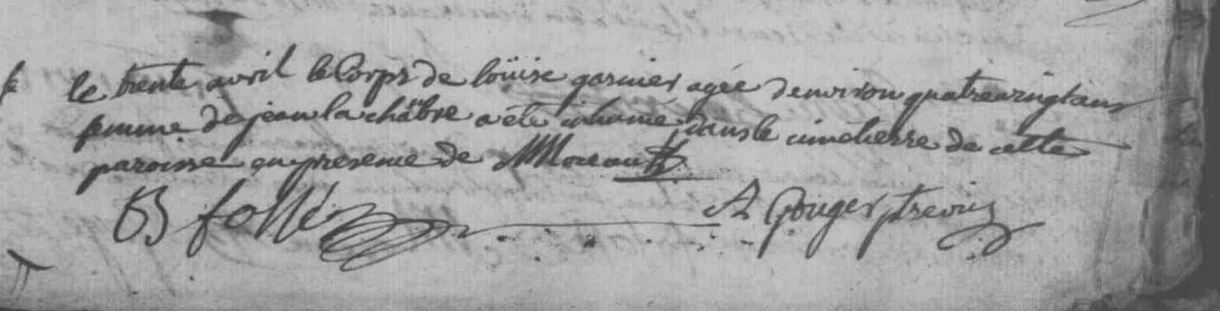 le trente avril le Corps de loüise garnier agée denviron quatrevingt ans
femme de jean la châtre a été inhumé dans le cimetierre de cette
paroisse en presence de Moreau
B follé A Gouger